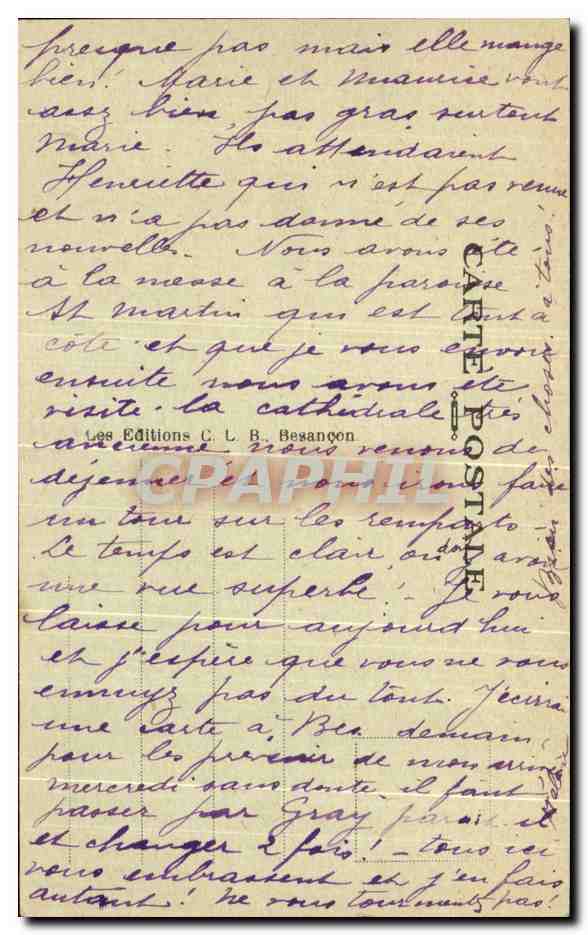 presque pas mais elle mange
bien! Marie et Maurice vont
assez bien, pas gras surtout
Marie. Ils attendaient
Henriette qui n'est pas venue
et n'a pas donné de ses
nouvelles. Nous avons été
à la messe à la paroisse
St Martin qui est tout à
côté et que je vous envoie
ensuite nous avons été
visité la cathédrale très
ancienne nous venons de
déjeuner et nous irons faire
un tour sur les remparts
Le temps est clair on doit avoir
une vue superbe! Je vous
laisse pour aujourd'hui
et j'espère que vous ne vous
ennuyz pas du tout. J'écrirai
une carte à Bes. demain
pour les prévenir de mon arrivée
mercredi sans doute, il faut
passer par Gray parait il
et changer 2 fois! - tous ici
vous embrassent et j'en fais
autant! Ne vous tourmentez pas!
choses à tous!
CARTE POSTALE
Les Editions C. L. B., Besançon
CPAPHIL